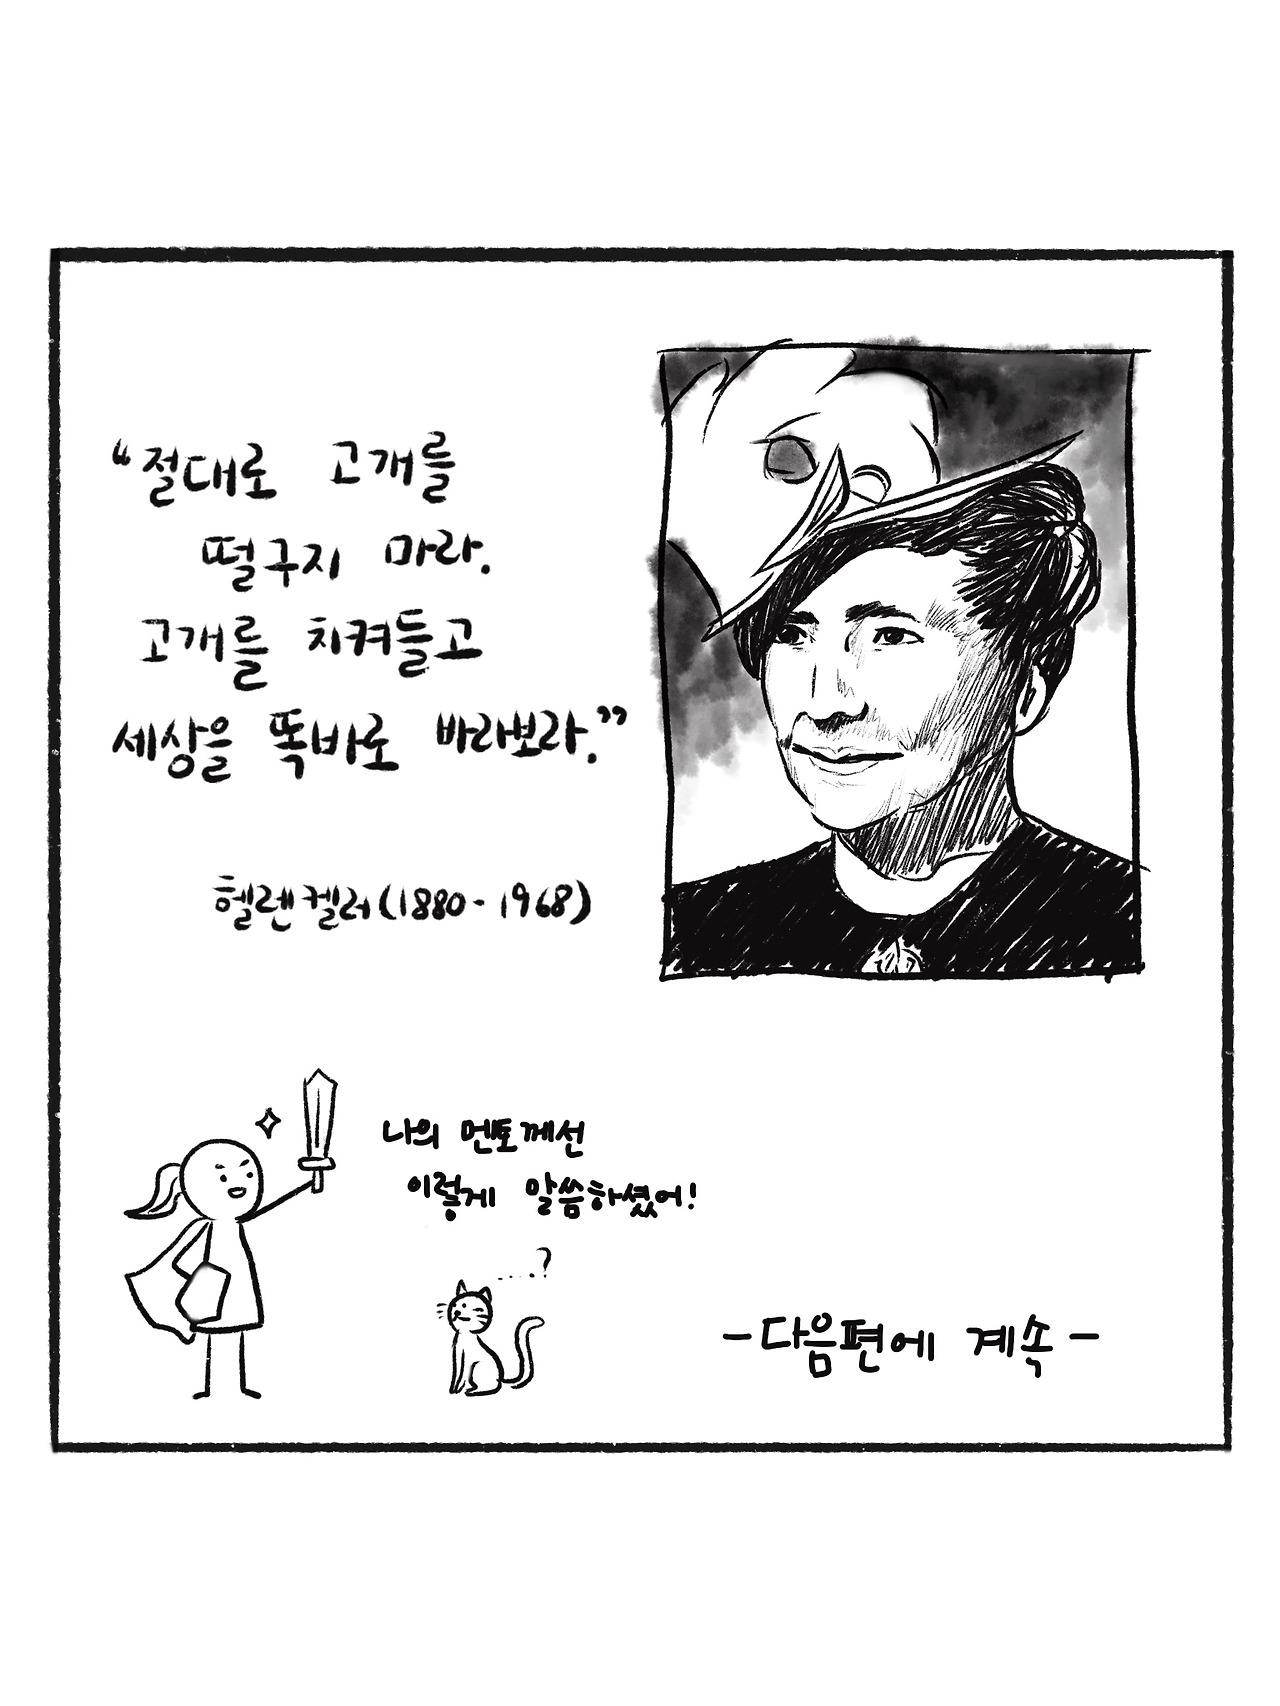 “절대로 고개를
떨구지 마라.
고개를 치켜들고
세상을 똑바로 바라보라.”
헬렌켈러(1880-1968)
나의 멘토께선
이렇게 말씀하셨어!
....?
-다음편에 계속-